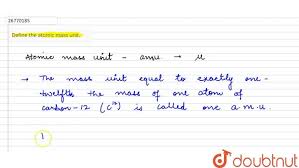 26770185
Define the atomic mass unit.
Atomic mass unit - amu → u
→ The mass unit equal to exactly one-
twelfth the mass of one atom of
carbon-12 (C¹²) is called one a.m.u.
1
doubtnut